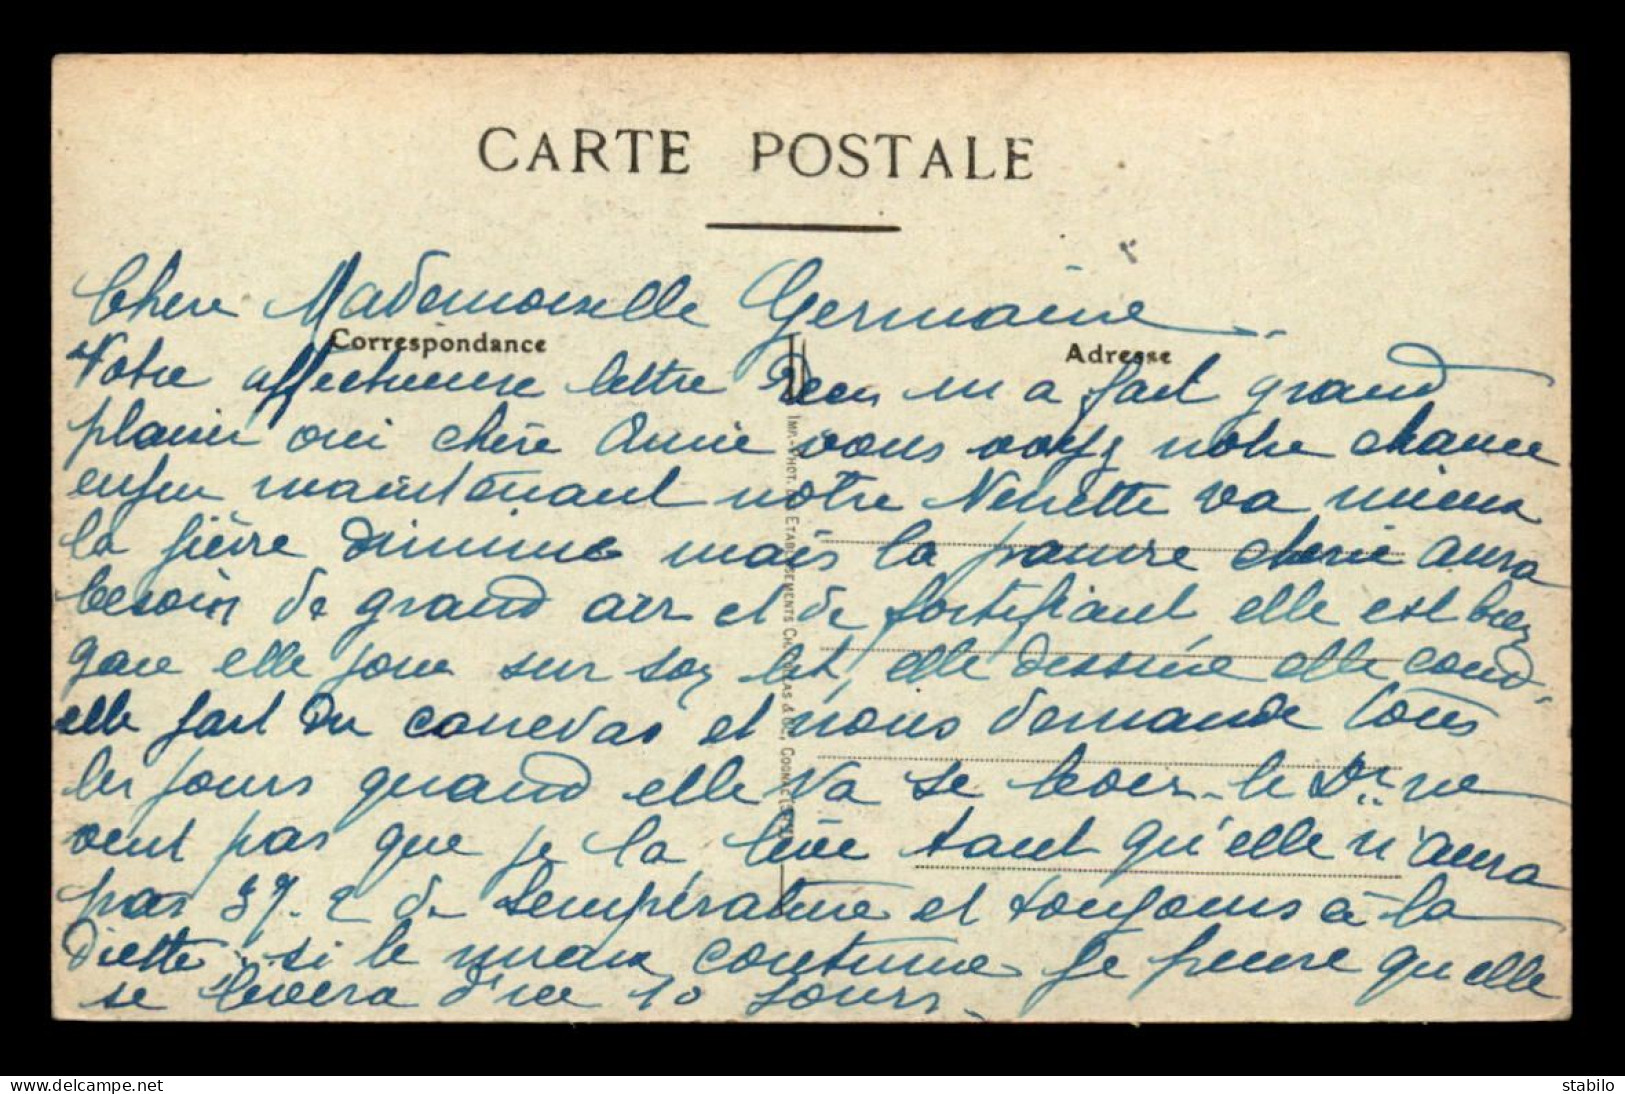 CARTE POSTALE
Chère Mademoiselle Germaine
Correspondance
Adresse
Votre affectueuse lettre Recu m a fait grand
plaisir oui chère Amie vous voyez notre chance
enfin maintenant notre Nenette va mieux
la fièvre diminue mais la pauvre cherie aura
besoin de grand air et de fortifiant elle est bien
gaie elle joue sur son lit, elle dessine elle coud,
elle fait du canevas et nous demande tous
les jours quand elle va se lever. le Dr. ne
veut pas que je la lève tant qu'elle n'aura
pas 37.2 de température et toujours à la
diette, si le mieux continue je pense qu elle
se levera d'ice 10 jours.
IMP.-PHOT. DES ETABLISSEMENTS CH. COLLAS & Cie, COGNAC
www.delcampe.net
stabilo